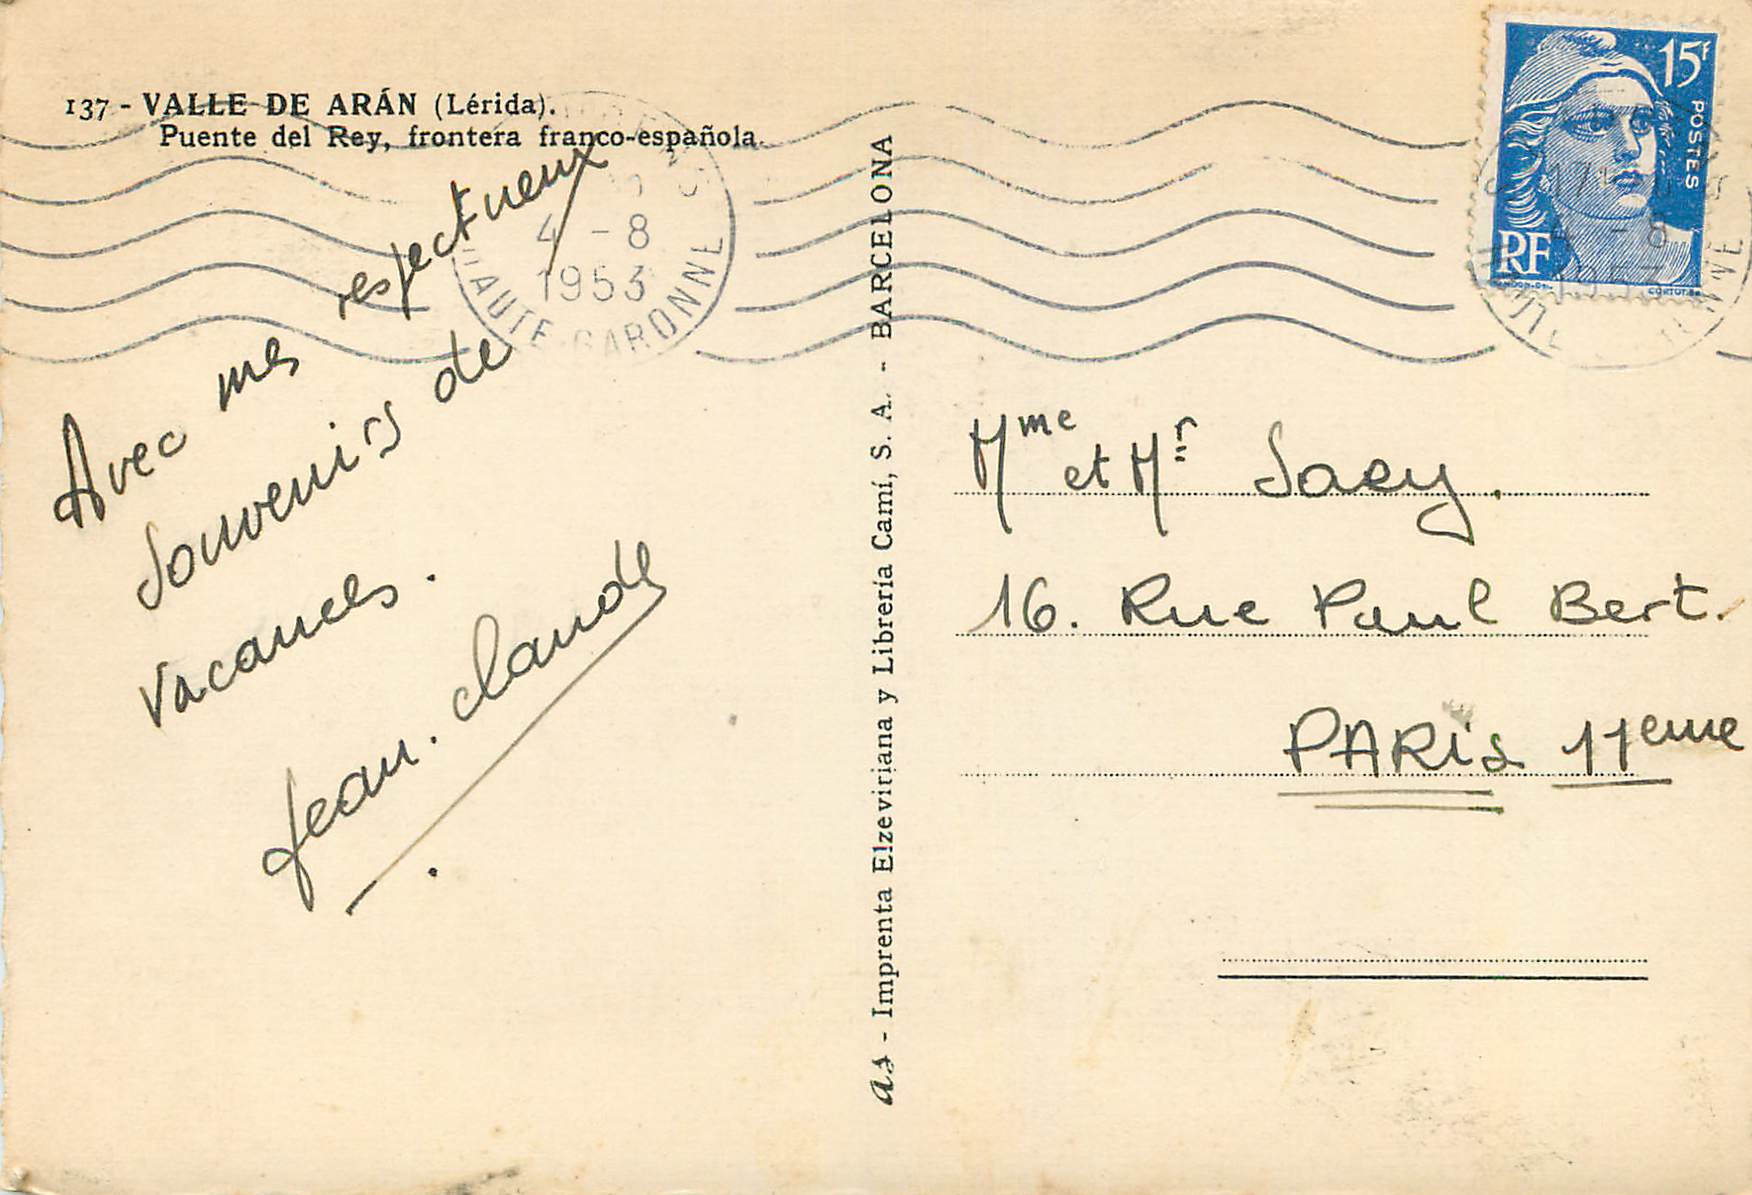 137 - VALLE DE ARÁN (Lérida).
Puente del Rey, frontera franco-española.
4 - 8
1953
HAUTE-GARONNE
Avec mes respectueux
souvenirs de
vacances.
Jean-Claude
as - Imprenta Elzeviriana y Librería Camí, S. A. - BARCELONA
15F
POSTES
RF
Mme et Mr
16. Rue Paul Bert.
PARis 11eme